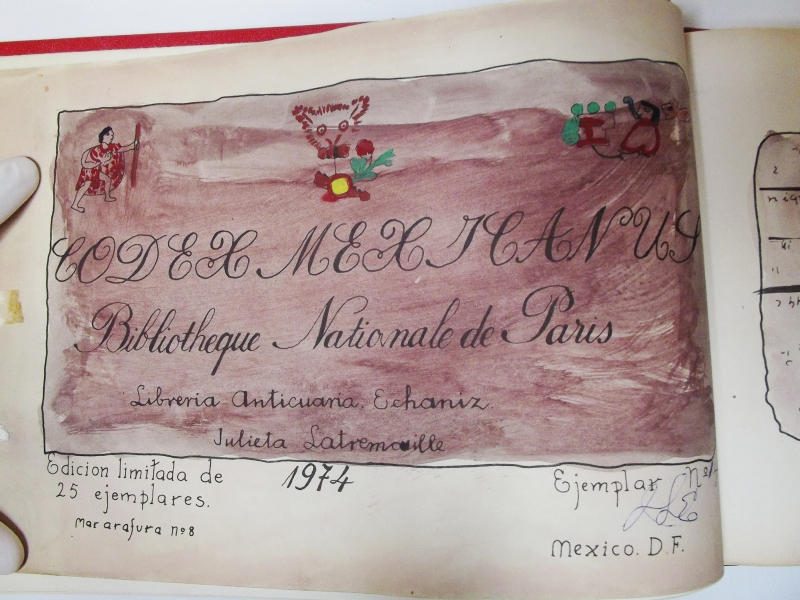 CODEX MEXICANUS
Bibliotheque Nationale de Paris
Libreria Anticuaria. Echaniz.
Julieta Latremouille
Edicion limitada de
25 ejemplares.
1974
Ejemplar Nº
Mar arafura nº 8
Mexico. D.F.